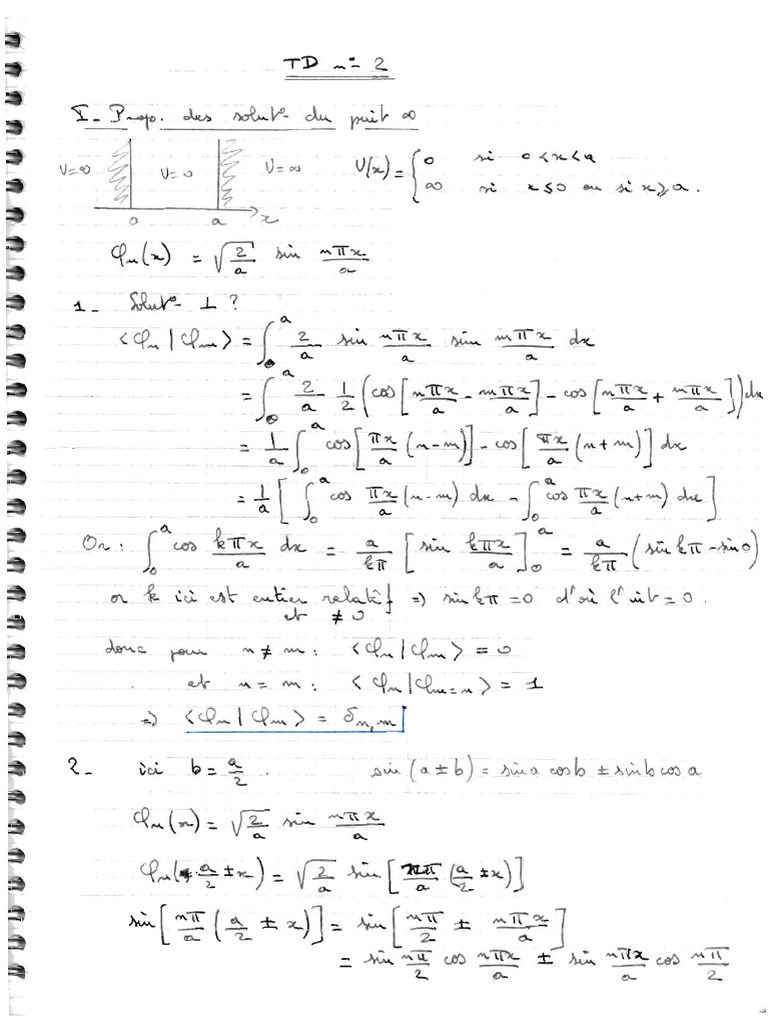 TD n° 2
I- Prop. des solut° du puit ∞
V=∞ V=0 V=∞ V(x) = { 0 si 0<x<a
∞ si x≤0 ou si x≥a.
0 a x
φn(x) = √(2/a) sin nπx/a
1- Solut° ⊥ ?
<φn|φm> = ∫₀ᵃ 2/a sin nπx/a sin mπx/a dx
= ∫₀ᵃ 2/a 1/2 (cos[nπx/a - mπx/a] - cos[nπx/a + mπx/a])dx
= 1/a ∫₀ᵃ cos[πx/a (n-m)] - cos[πx/a (n+m)] dx
= 1/a [∫₀ᵃ cos πx/a (n-m) dx - ∫₀ᵃ cos πx/a (n+m) dx]
Or : ∫₀ᵃ cos kπx/a dx = a/kπ [sin kπx/a]₀ᵃ = a/kπ (sin kπ - sin 0)
or k ici est entier relatif ⇒ sin kπ = 0 d'où l'int = 0.
et ≠ 0
donc pour n ≠ m : <φn|φm> = 0
et n = m : <φn|φm=n> = 1
⇒ <φn|φm> = δn,m
2- ici b = a/2. sin(a±b) = sin a cos b ± sin b cos a
φn(x) = √(2/a) sin nπx/a
φn(a/2 ± x) = √(2/a) sin[nπ/a (a/2 ± x)]
sin[nπ/a (a/2 ± x)] = sin[nπ/2 ± nπx/a]
= sin nπ/2 cos nπx/a ± sin nπx/a cos nπ/2